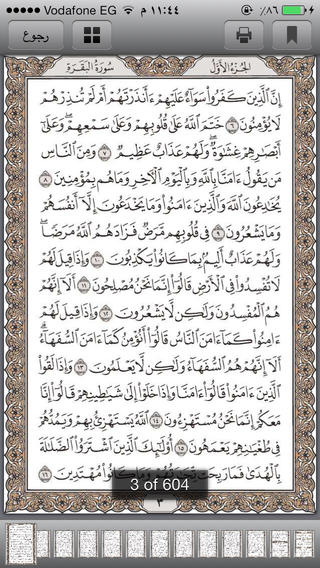 Vodafone EG ١١:٤٤ م ٪٨٦
رجوع
سُورَةُ البَقَرَةِ الجُزءُ الأَوَّلُ
إِنَّ ٱلَّذِينَ كَفَرُوا۟ سَوَآءٌ عَلَيْهِمْ ءَأَنذَرْتَهُمْ أَمْ لَمْ تُنذِرْهُمْ
لَا يُؤْمِنُونَ ٦ خَتَمَ ٱللَّهُ عَلَىٰ قُلُوبِهِمْ وَعَلَىٰ سَمْعِهِمْ ۖ وَعَلَىٰٓ
أَبْصَٰرِهِمْ غِشَٰوَةٌ ۖ وَلَهُمْ عَذَابٌ عَظِيمٌ ٧ وَمِنَ ٱلنَّاسِ
مَن يَقُولُ ءَامَنَّا بِٱللَّهِ وَبِٱلْيَوْمِ ٱلْـَٔاخِرِ وَمَا هُم بِمُؤْمِنِينَ ٨
يُخَٰدِعُونَ ٱللَّهَ وَٱلَّذِينَ ءَامَنُوا۟ وَمَا يَخْدَعُونَ إِلَّآ أَنفُسَهُمْ
وَمَا يَشْعُرُونَ ٩ فِى قُلُوبِهِم مَّرَضٌ فَزَادَهُمُ ٱللَّهُ مَرَضًا ۖ
وَلَهُمْ عَذَابٌ أَلِيمٌۢ بِمَا كَانُوا۟ يَكْذِبُونَ ١٠ وَإِذَا قِيلَ لَهُمْ
لَا تُفْسِدُوا۟ فِى ٱلْأَرْضِ قَالُوٓا۟ إِنَّمَا نَحْنُ مُصْلِحُونَ ١١ أَلَآ إِنَّهُمْ
هُمُ ٱلْمُفْسِدُونَ وَلَٰكِن لَّا يَشْعُرُونَ ١٢ وَإِذَا قِيلَ لَهُمْ
ءَامِنُوا۟ كَمَآ ءَامَنَ ٱلنَّاسُ قَالُوٓا۟ أَنُؤْمِنُ كَمَآ ءَامَنَ ٱلسُّفَهَآءُ ۗ
أَلَآ إِنَّهُمْ هُمُ ٱلسُّفَهَآءُ وَلَٰكِن لَّا يَعْلَمُونَ ١٣ وَإِذَا لَقُوا۟
ٱلَّذِينَ ءَامَنُوا۟ قَالُوٓا۟ ءَامَنَّا وَإِذَا خَلَوْا۟ إِلَىٰ شَيَٰطِينِهِمْ قَالُوٓا۟ إِنَّا
مَعَكُمْ إِنَّمَا نَحْنُ مُسْتَهْزِءُونَ ١٤ ٱللَّهُ يَسْتَهْزِئُ بِهِمْ وَيَمُدُّهُمْ
فِى طُغْيَٰنِهِمْ يَعْمَهُونَ ١٥ أُو۟لَٰٓئِكَ ٱلَّذِينَ ٱشْتَرَوُا۟ ٱلضَّلَٰلَةَ
بِٱلْهُدَىٰ فَمَا رَبِحَت تِّجَٰرَتُهُمْ وَمَا كَانُوا۟ مُهْتَدِينَ ١٦
3 of 604
٣